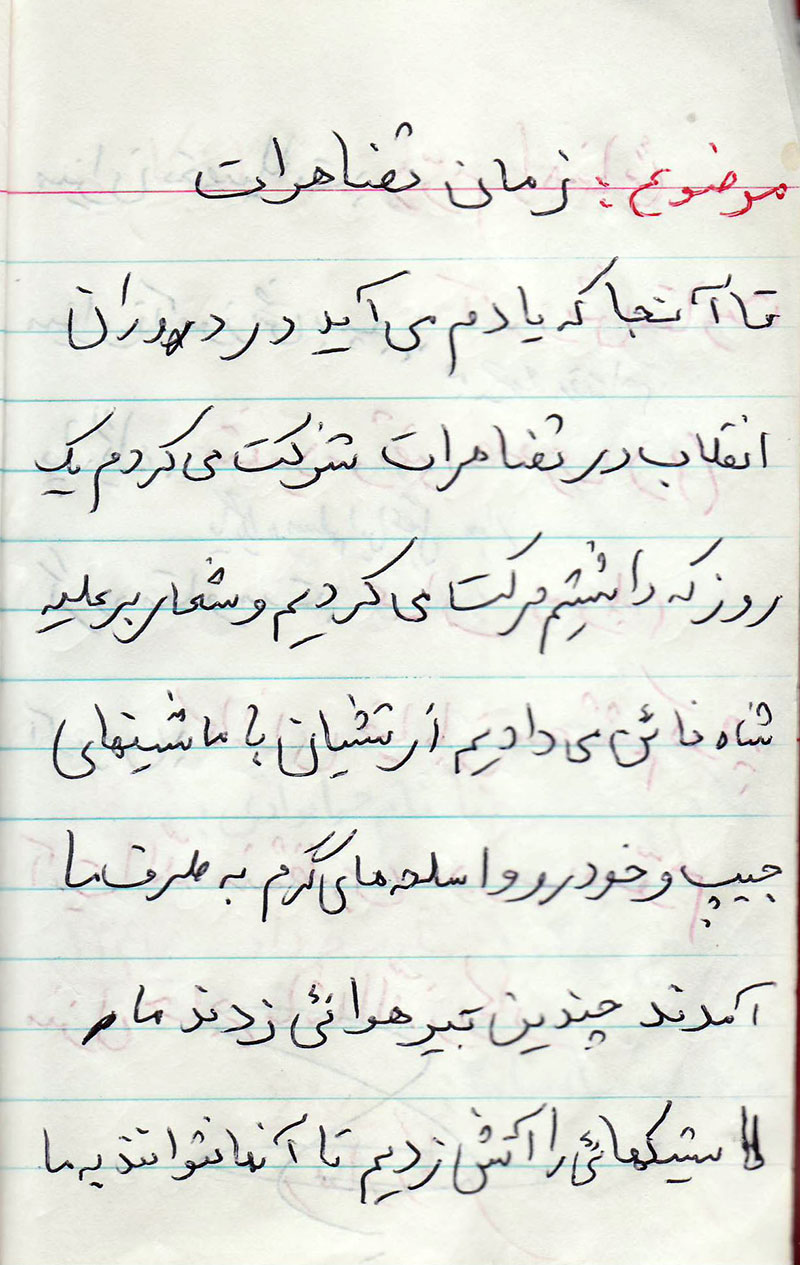 موضوع : زمان تضاهرات
تا آنجا که یادم می آید در دوران
انقلاب در تضاهرات شرکت می کردم یک
روز که داشتیم حرکت می کردیم و شعار بر علیه
شاه خائن می دادیم ارتشیان با ماشینهای
جیپ و خودرو و اسلحه های گرم به طرف ما
آمدند چندین تیر هوائی زدند ما
لاستیکهائی را آتش زدیم تا آنها نتوانند به ما